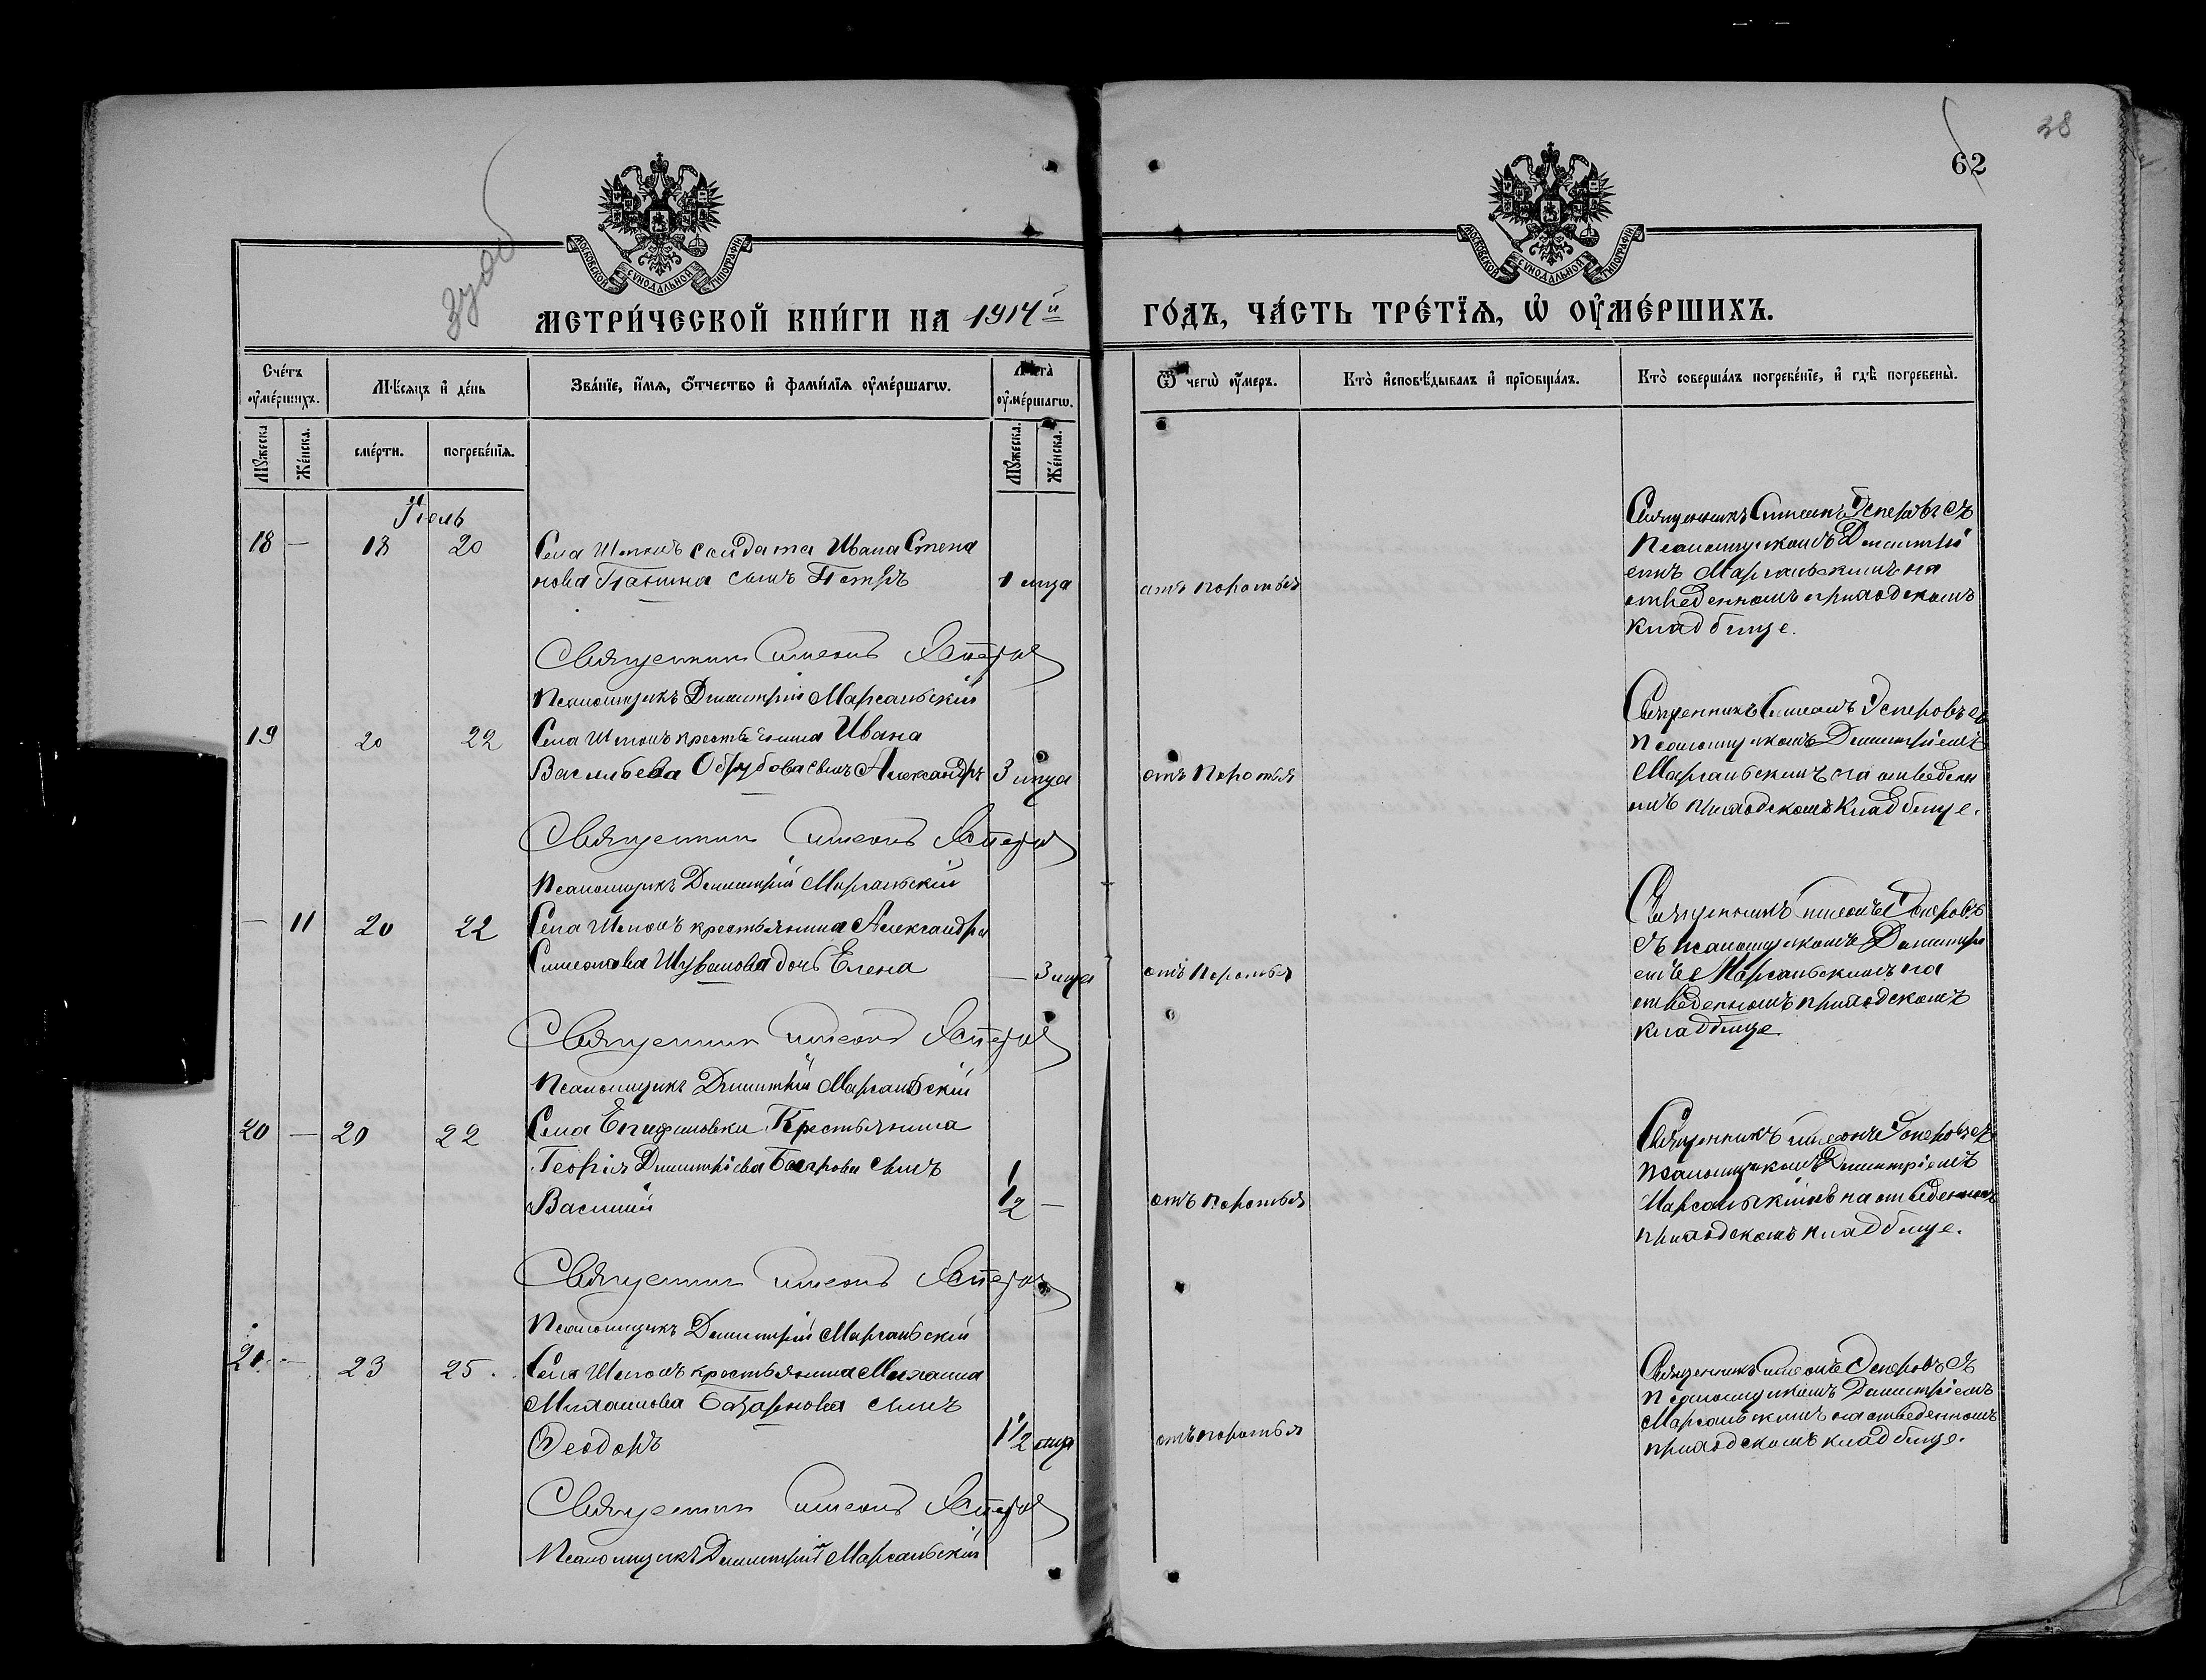 38
62
МОСКОВСКОЙ СѴНОДАЛЬНОЙ ТИПОГРАФІИ
МОСКОВСКОЙ СѴНОДАЛЬНОЙ ТИПОГРАФІИ
МЕТРИ́ЧЕСКОЙ КНИ́ГИ НА 1914й ГО́ДЪ, ЧА́СТЬ ТРЕ́ТЇѦ, Ѡ҆ ОУ҆МЕ́РШИХЪ.
Сче́тъ оу҆ме́ршихъ.
Мѣ́сяцъ и҆ де́нь
Зва́нїе, и҆́мѧ, ѻ҆́тчество и҆ фами́лїѧ оу҆ме́ршагѡ.
Лѣ́та̀ оу҆ме́ршагѡ.
Ѿ чегѡ̀ оу҆́меръ.
Кто̀ и҆сповѣ́дывалъ и҆ прїѻбща́лъ.
Кто̀ соверша́лъ погребе́нїе, и҆ гдѣ̀ погребены̀.
Мꙋ́жеска
Же́нска.
сме́рти.
погребе́нїѧ.
Мꙋ́жеска.
Же́нска.
Іюль
18 — 18 20
Села Шипокъ солдата Ивана Степа
нова Панина сынъ Петръ
1 мца
отъ поротья
Священникъ Симеонъ Эсперовъ съ
псаломщикомъ Димитрі
емъ Марсальскимъ на
отведенномъ приходскомъ
кладбище.
Священник Симеонъ Эсперов
Псаломщикъ Димитрій Марсальскій
19 20 22
Села Шипокъ крестьянина Ивана
Васильева Обрубова сынъ Александръ
3 мца
отъ поротья
Священникъ Симеонъ Эсперовъ съ
псаломщикомъ Димитріемъ
Марсальскимъ на отведенн
омъ приходскомъ кладбище.
Священник Симеонъ Эсперов
Псаломщикъ Димитрій Марсальскій
— 11 20 22
Села Шипокъ крестьянина Александра
Симеонова Шувалова дочь Елена
— 3 мца
отъ поротья
Священникъ Симеонъ Эсперовъ
съ псаломщикомъ Димитрі
емъ Марсальскимъ на
отведенномъ приходскомъ
кладбище.
Священник Симеонъ Эсперов
Псаломщикъ Димитрій Марсальскій
20 — 20 22
Села Епифановки Крестьянина
Георгія Димитріева сынъ
Василий
1/2 —
отъ поротья
Священникъ Симеонъ Эсперовъ съ
псаломщикомъ Димитріемъ
Марсальскимъ на отведенномъ
приходскомъ кладбище.
Священник Симеонъ Эсперов
Псаломщикъ Димитрій Марсальскій
21. — 23 25.
Села Шипокъ крестьянина Михаила
Михаилова Базарнова сынъ
Ѳеодоръ
1 1/2 мца
отъ поротья
Священникъ Симеонъ Эсперовъ съ
псаломщикомъ Димитріемъ
Марсальскимъ на отведенномъ
приходскомъ кладбище.
Священник Симеонъ Эсперов
Псаломщикъ Димитрій Марсальскій